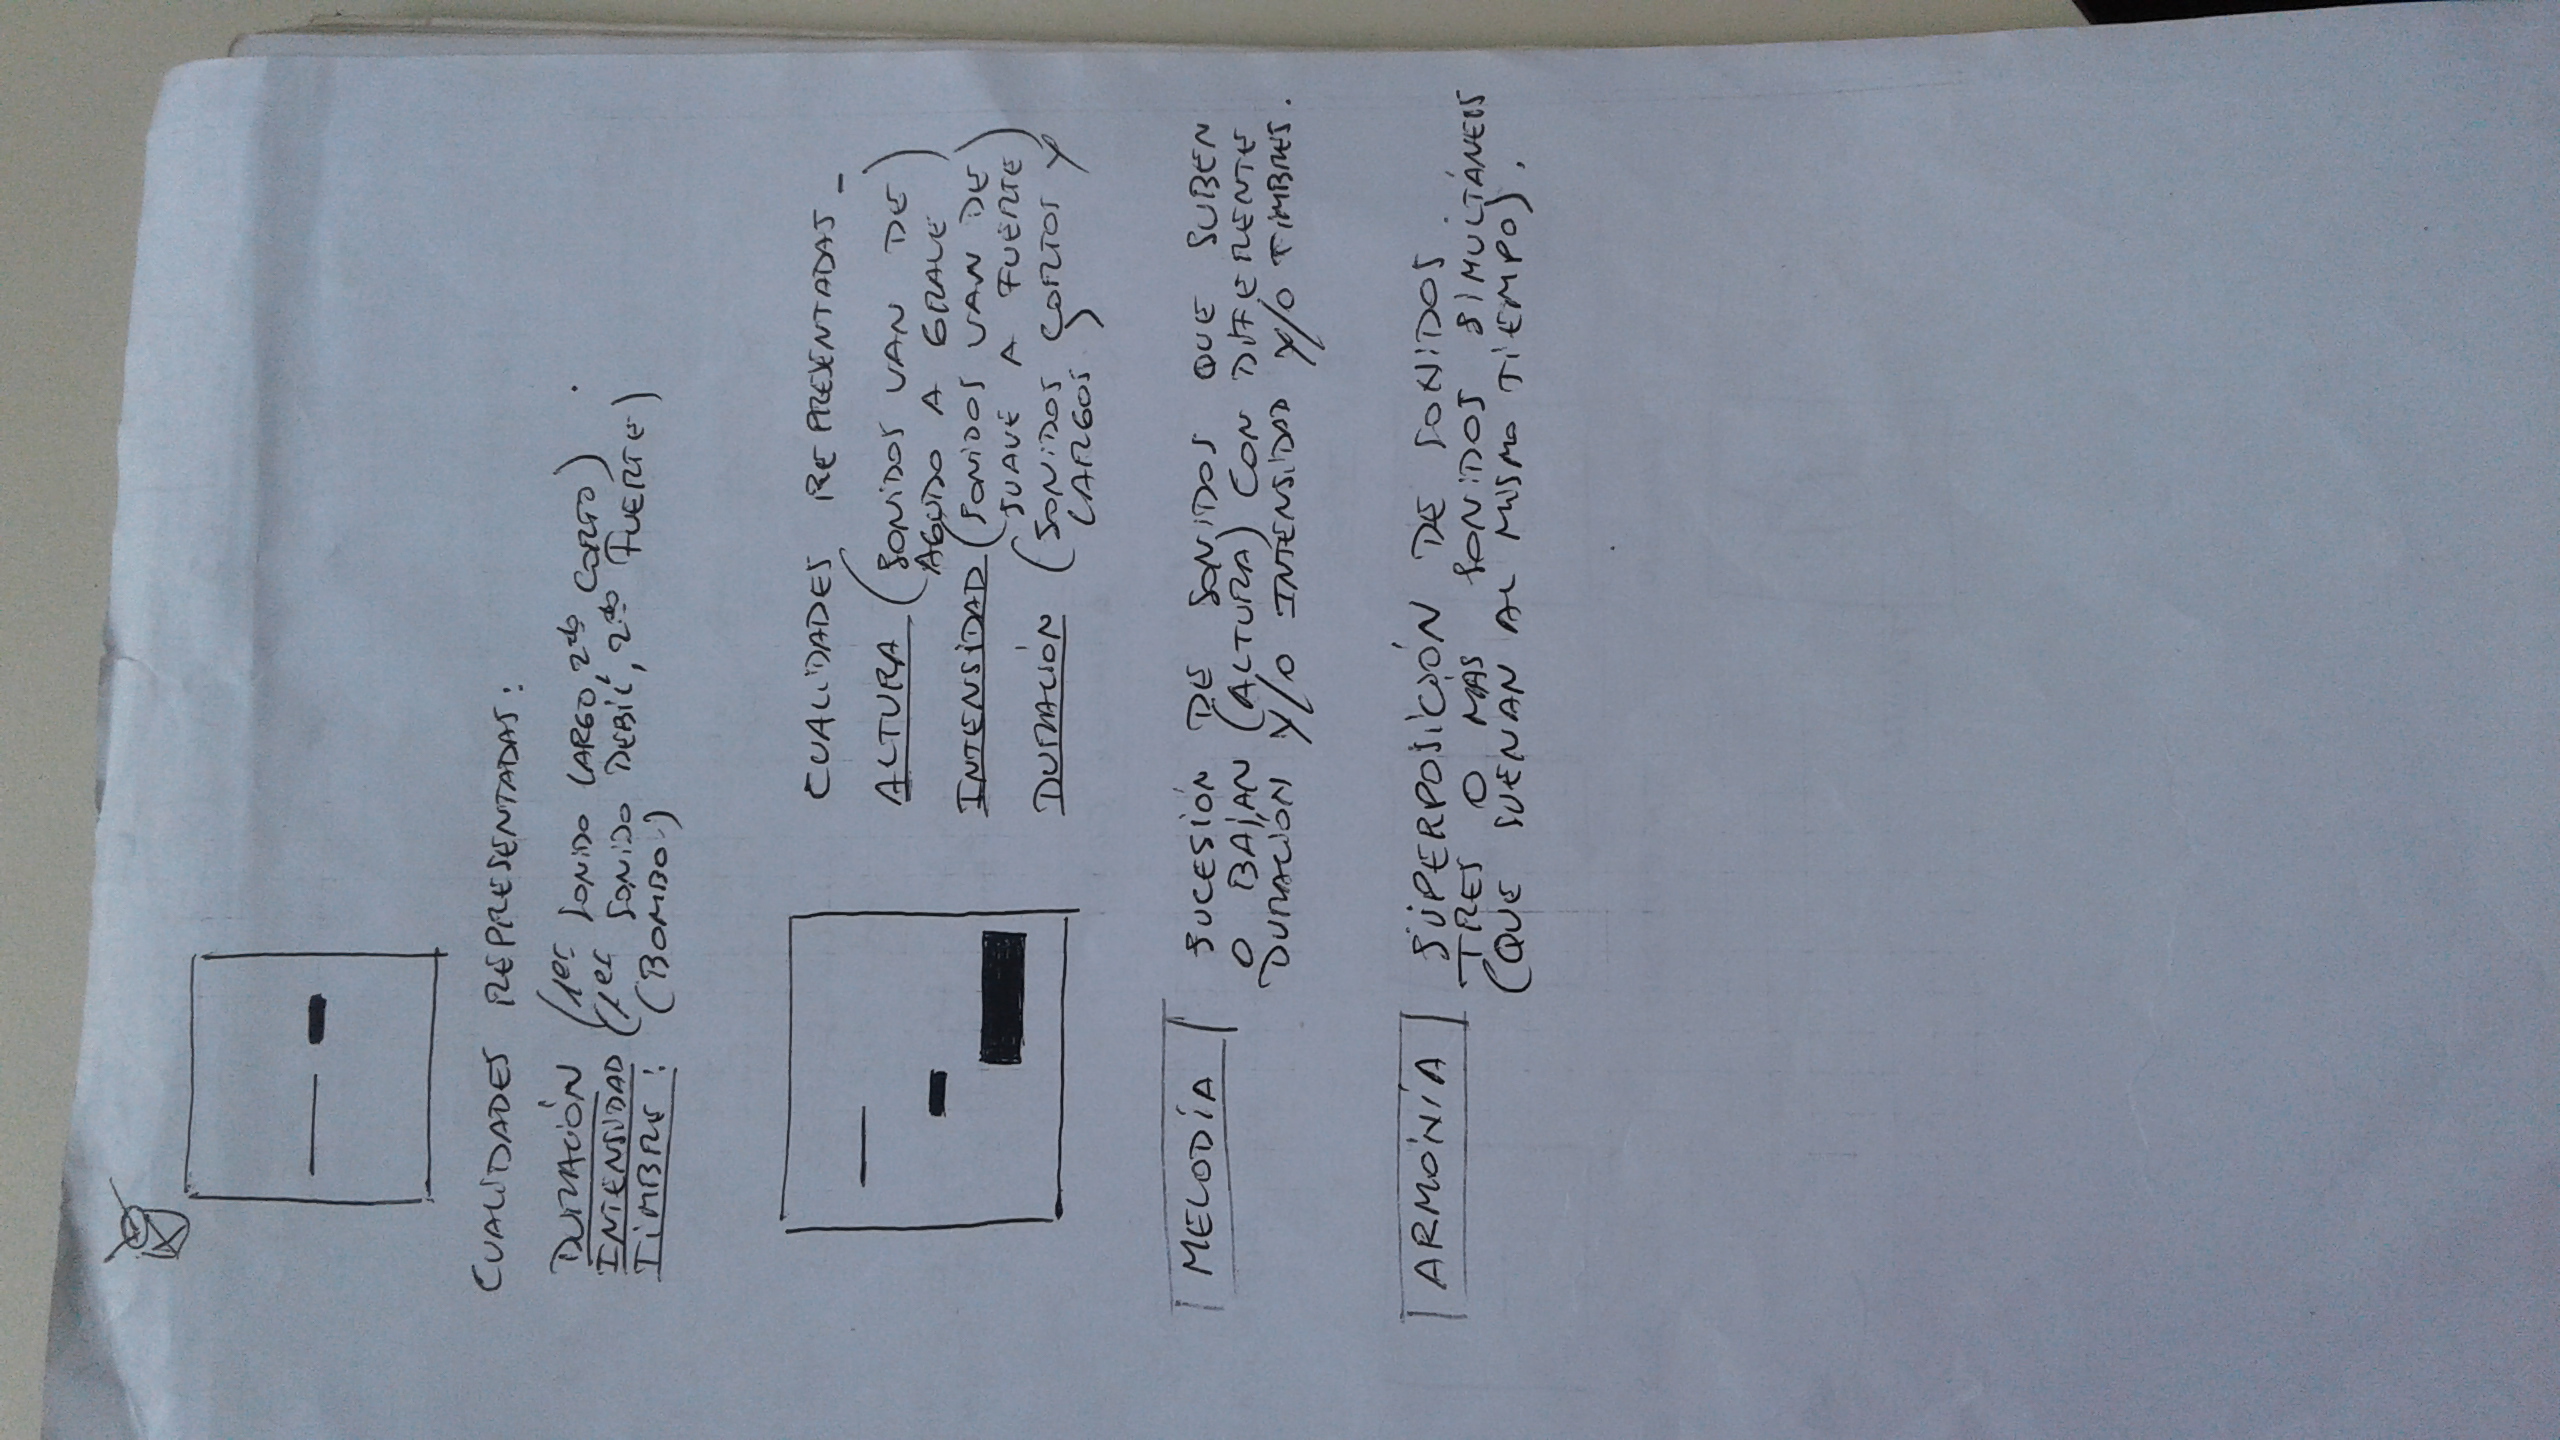 CUALIDADES REPRESENTADAS:
DURACIÓN (1er SONIDO LARGO, 2do CORTO).
INTENSIDAD (1er SONIDO DEBIL, 2do FUERTE)
TIMBRE: (BOMBO.)
CUALIDADES REPRESENTADAS -
ALTURA (SONIDOS VAN DE
AGUDO A GRAVE)
INTENSIDAD (SONIDOS VAN DE
SUAVE A FUERTE)
DURACIÓN (SONIDOS CORTOS Y
LARGOS)
MELODÍA
SUCESIÓN DE SONIDOS QUE SUBEN
O BAJAN (ALTURA) CON DIFERENTE
DURACIÓN Y/O INTENSIDAD Y/O TIMBRES.
ARMONÍA
SUPERPOSICIÓN DE SONIDOS
TRES O MAS SONIDOS SIMULTÁNEOS
(QUE SUENAN AL MISMO TIEMPO).